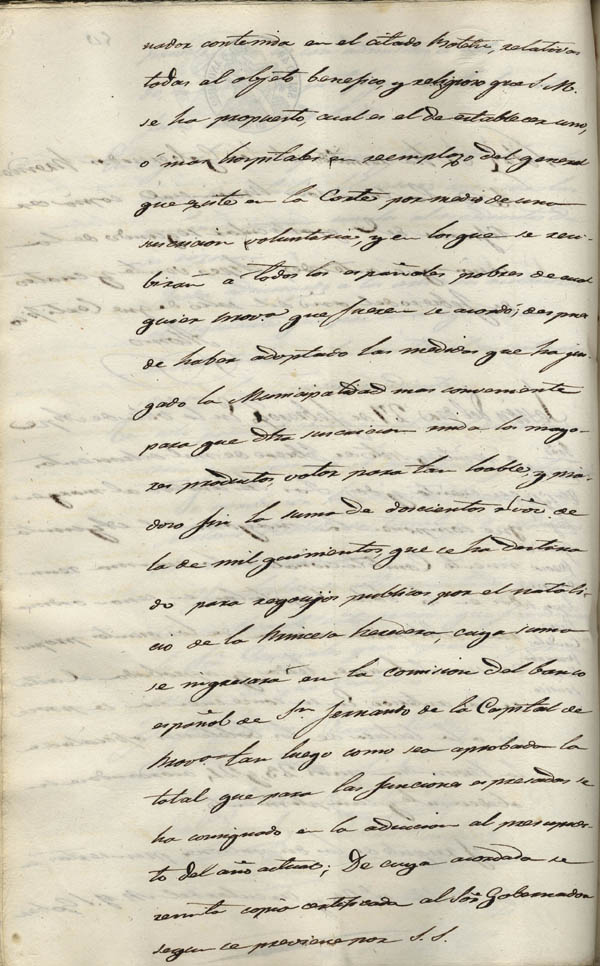 nador contenida en el citado Boletin, relativas
todas al objeto benefico, y religioso que S. M.
se ha propuesto, cual es el de establecer uno,
o mas hospitales en reemplazo del general
que existe en la Corte por medio de una
suscricion voluntaria, y en los que se reci-
biran a todos los españoles pobres de cual
quier Prova. que fueren se acordó; despues
de haber adoptado las medidas que ha juz-
gado la Municipalidad mas conveniente
para que dha suscricion rinda los mayo-
res productos, votar para tan loable, y pia-
doso fin la suma de doscientos rs. von. de
la de mil quinientos, que se ha destina
do para regocijos publicos por el natali-
cio de la Princesa heredera, cuya suma
se ingresará en la comision del banco
español de Sn. Fernando de la Capital de
Prova. tan luego como sea aprobada la
total que para las funciones espresadas se
ha consignado en la adicion al presupues-
to del año actual; De cuya acordada se
remita copia certificada al Sor. Gobernador
segun se previene por S. S.